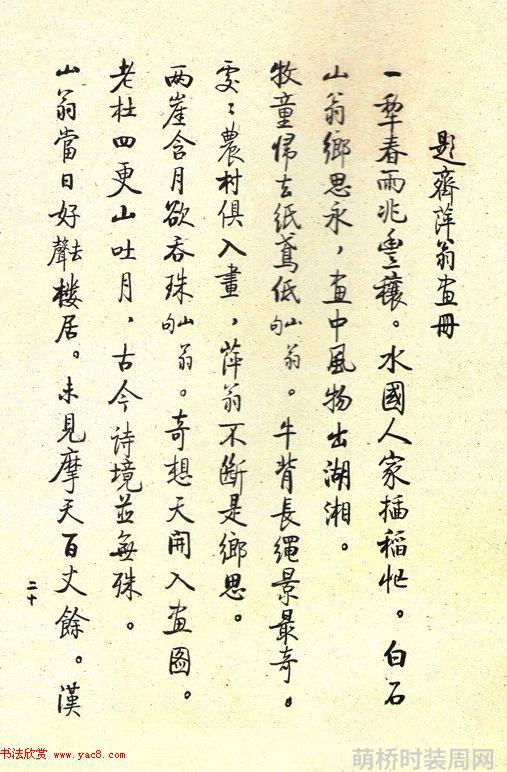 題齊萍翁畫冊
一犂春雨兆豐穰。水國人家插稻忙。白石
山翁鄉思永,畫中風物出湖湘。
牧童歸去紙鳶低山翁句。牛背長繩景最奇。
處〻農村俱入畫,萍翁不斷是鄉思。
兩崖含月欲吞珠山翁句。奇想天開入畫圖。
老杜四更山吐月,古今詩境並無殊。
山翁當日好去聲樓居。未見摩天百丈餘。漢
二十
书法欣赏 www.yac8.com
萌桥时装周网